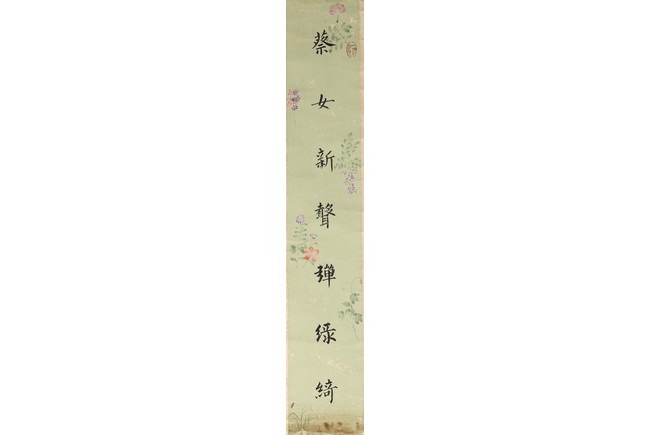 蔡女新聲彈綠綺